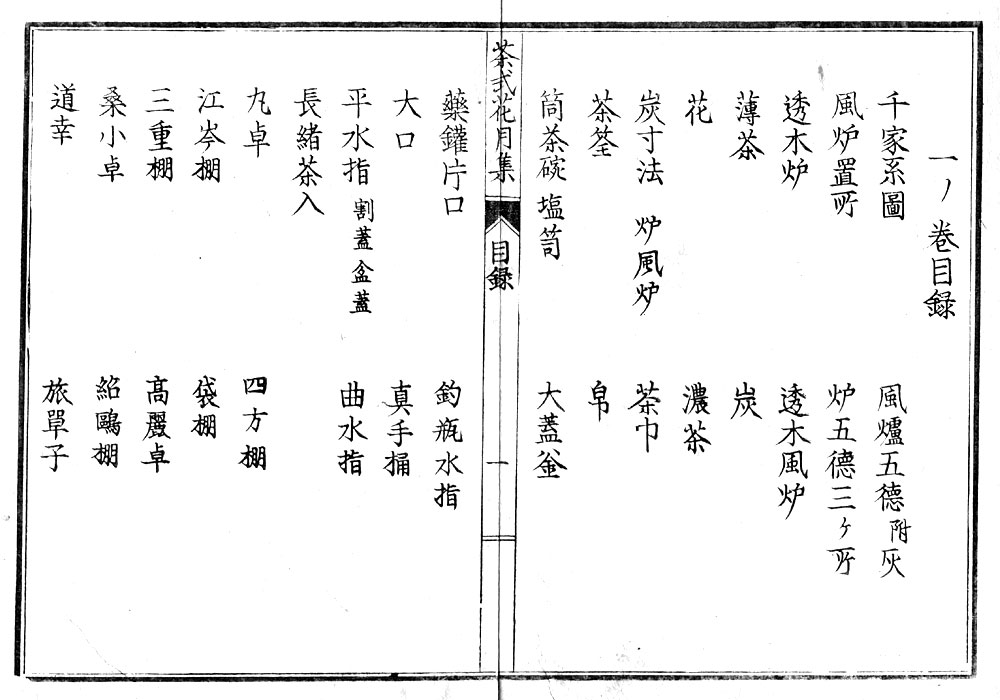 一ノ巻目録
千家系圖　風爐五德 附灰
風炉置所　炉五德三ケ所
透木炉　透木風炉
薄茶　炭
花　濃茶
炭寸法 炉風炉　茶巾
茶筌　帛
筒茶碗 塩笥　大蓋釜
茶式花月集　目録　一
藥鑵片口　釣瓶水指
大口　真手桶
平水指 割蓋盆蓋　曲水指
長緒茶入
九卓　四方棚
江岑棚　袋棚
三重棚　高麗卓
桑小卓　紹鷗棚
道幸　旅單子